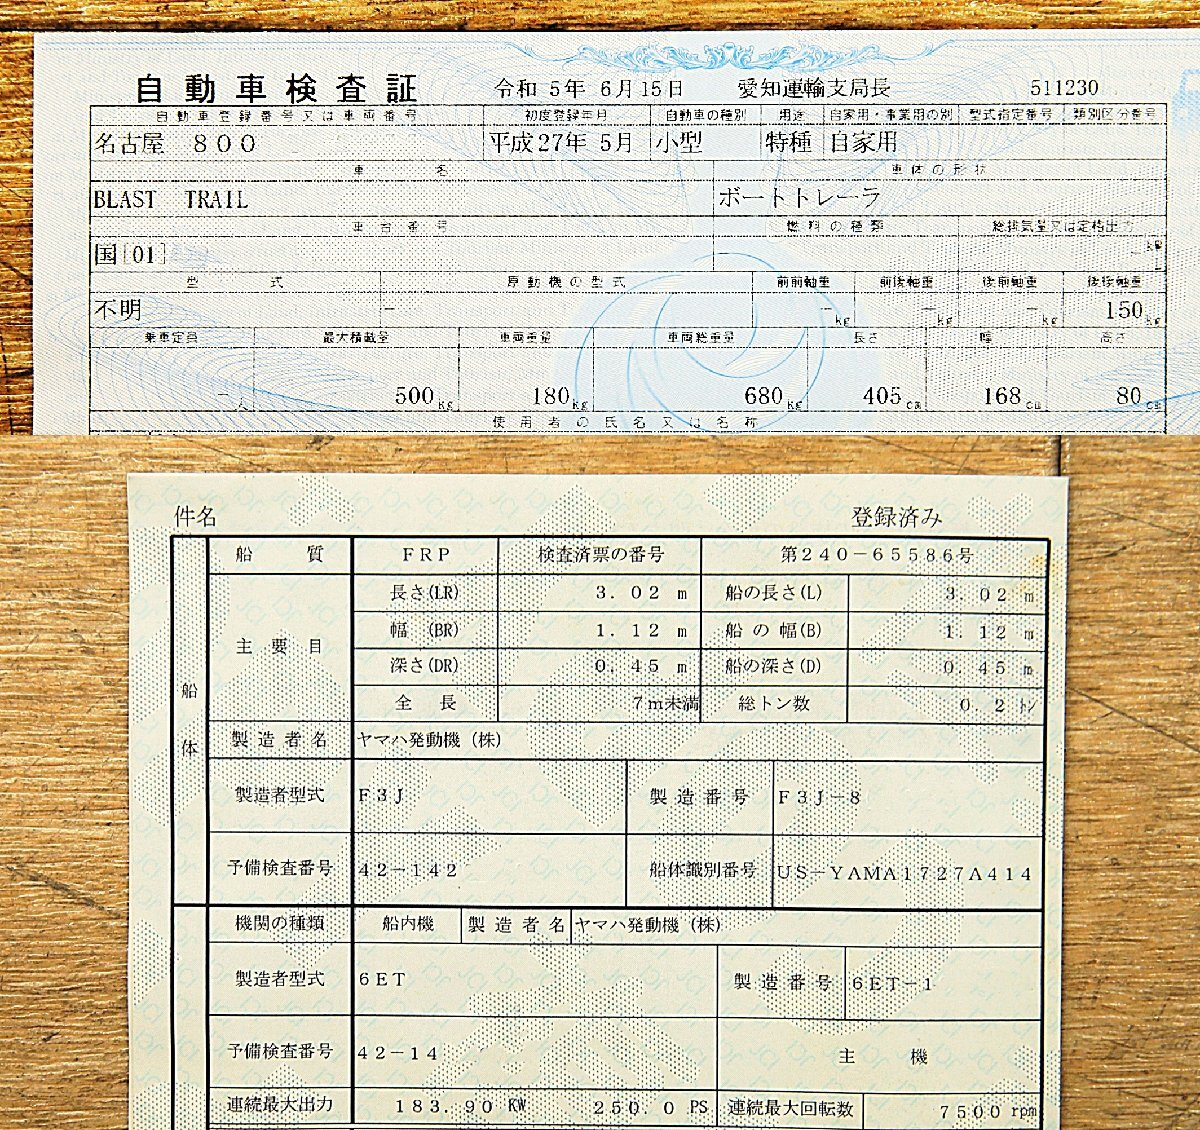 自動車検査証 令和 5年 6月15日 愛知運輸支局長 511230
自動車登録番号又は車両番号 初度登録年月 自動車の種別 用途 自家用・事業用の別 型式指定番号 類別区分番号
名古屋 800 平成27年 5月 小型 特種 自家用
車名 車体の形状
BLAST TRAIL ボートトレーラ
車台番号 燃料の種類 総排気量又は定格出力
国[01] － － kW
型式 原動機の型式 前前軸重 前後軸重 後前軸重 後後軸重
不明 － －kg －kg －kg 150kg
乗車定員 最大積載量 車両重量 車両総重量 長さ 幅 高さ
－人 500kg 180kg 680kg 405cm 168cm 80cm
使用者の氏名又は名称
件名 登録済み
船体
船質 FRP 検査済票の番号 第240－65586号
主要目
長さ(LR) 3.02 m 船の長さ(L) 3.02 m
幅 (BR) 1.12 m 船の幅(B) 1.12 m
深さ(DR) 0.45 m 船の深さ(D) 0.45 m
全長 7m未満 総トン数 0.2 トン
製造者名 ヤマハ発動機(株)
製造者型式 F3J 製造番号 F3J－8
予備検査番号 42－142 船体識別番号 US－YAMA1727A414
機関の種類 船内機 製造者名 ヤマハ発動機(株)
製造者型式 6ET 製造番号 6ET－1
予備検査番号 42－14 主機
連続最大出力 183.90 KW 250.0 PS 連続最大回転数 7500 rpm